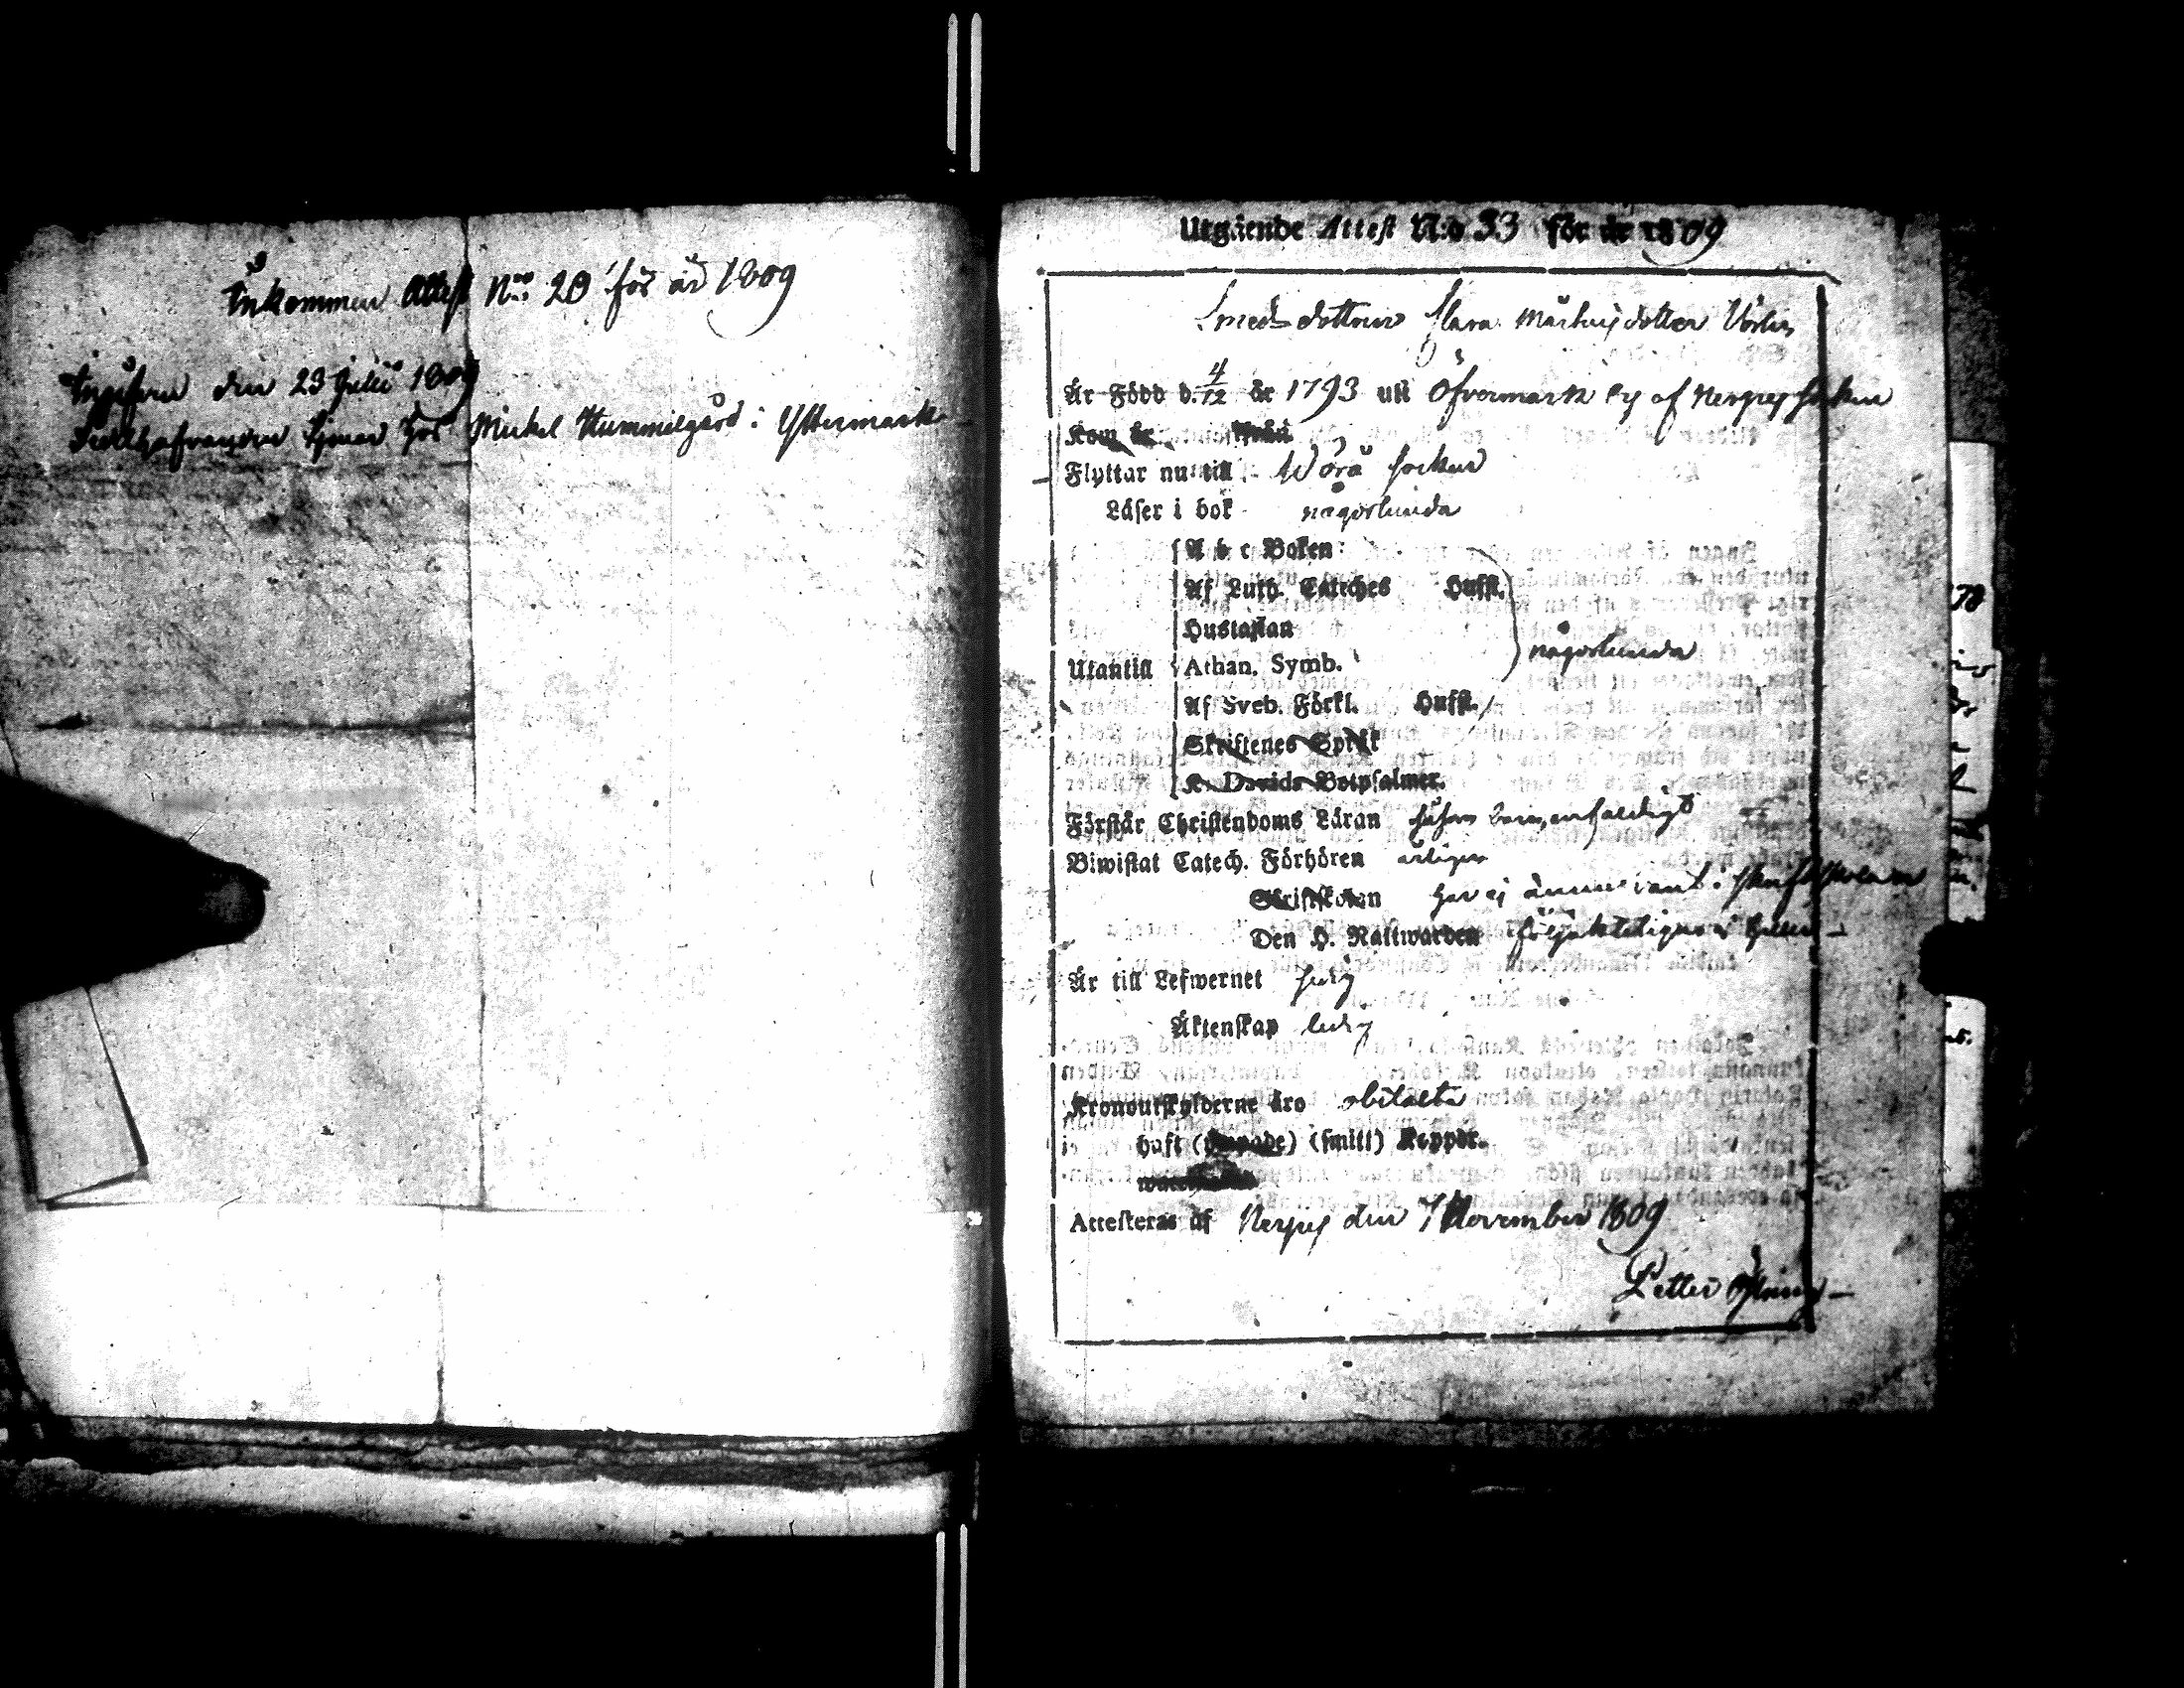 Inkommen Attest N:ro 20 för år 1809
den 23 Julii 1809
tjenar hos Mickel Hummelgård i Yttermark
Utgående Attest N:o 33 för år 1809
Smedsdottren Clara Mårtensdotter
Är Född d. 4/12 år 1793 uti Öfvermark by af Nerpes Socken
Kom år ifrån
Flyttar nu till Wörå Socken
Läser i bok någorlunda
A b c Boken
Af Luth. Cateches Hufst.
Hustaflan
någorlunda
Utantill Athan. Symb.
Af Sveb. Förkl. Hufst.
Skriftenes Språk
K. Davids Botpsalmer.
Förstår Christendoms Läran enfaldigt
Biwistat Catech. Förhören årligen
Skriftskolan har ej ännu varit i Skriftskolan
Den H. Nattwarden följakteligen ej heller
Är till Lefwernet
Äktenskap ledig
Kronoutskylderne äro obetalte
haft (smitt) Koppor.
Attesteras af Nerpes den 7 November 1809
Petter